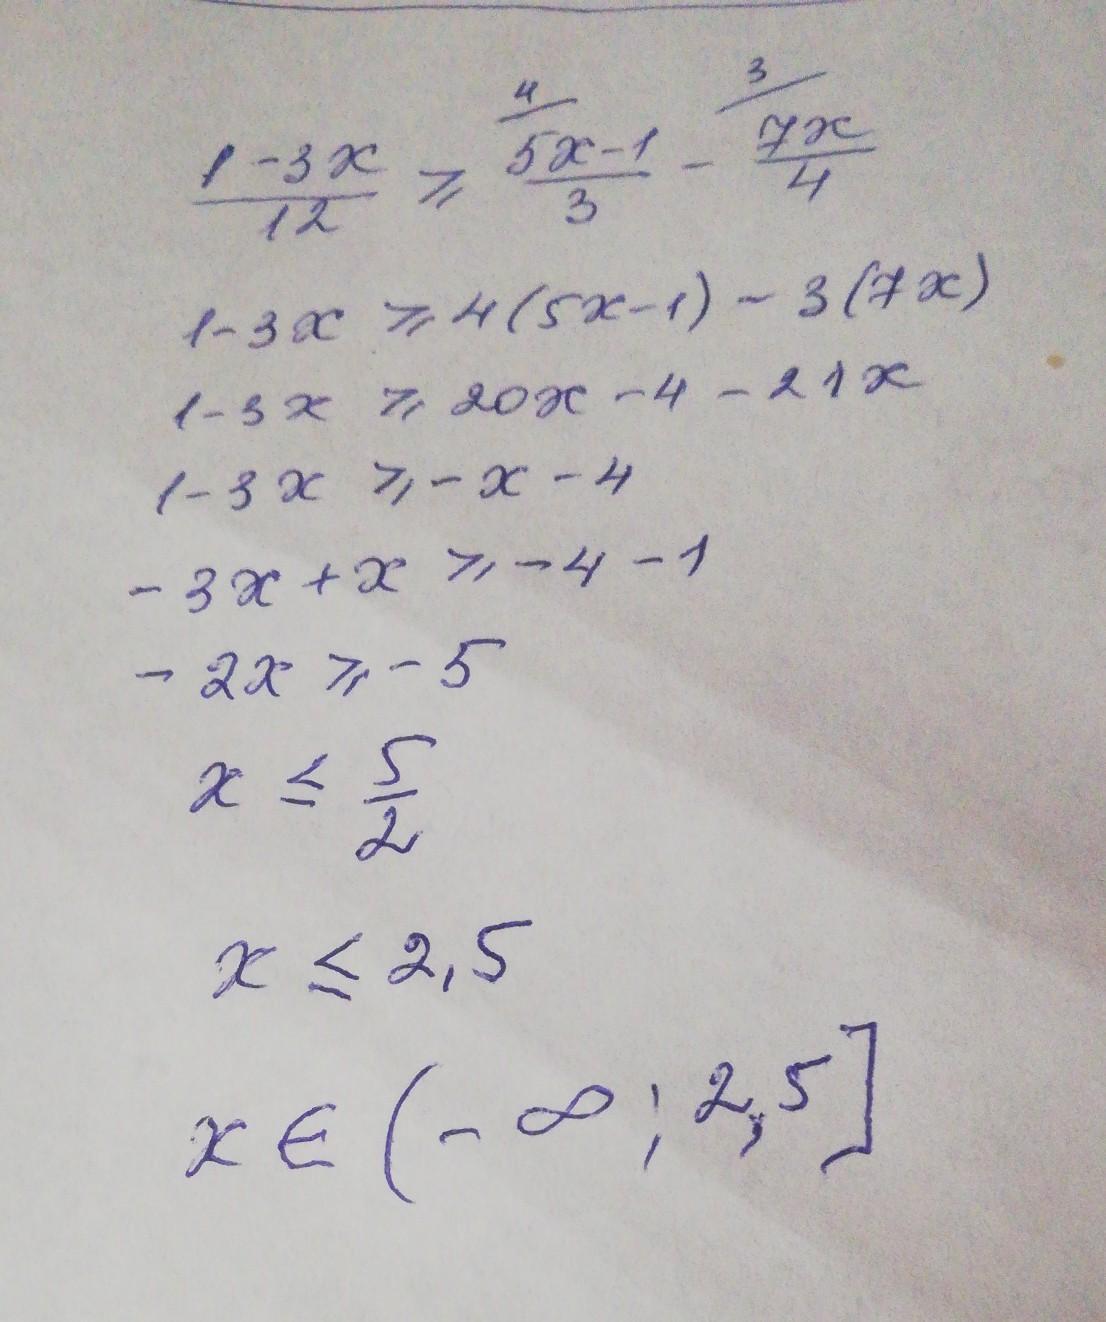 (1-3x)/12 ⩾ ⁴/(5x-1)/3 - ³/(7x)/4
1-3x ⩾ 4(5x-1) - 3(7x)
1-3x ⩾ 20x - 4 - 21x
1-3x ⩾ -x - 4
-3x + x ⩾ -4 - 1
-2x ⩾ -5
x ≤ 5/2
x ≤ 2,5
x ∈ (-∞; 2,5]